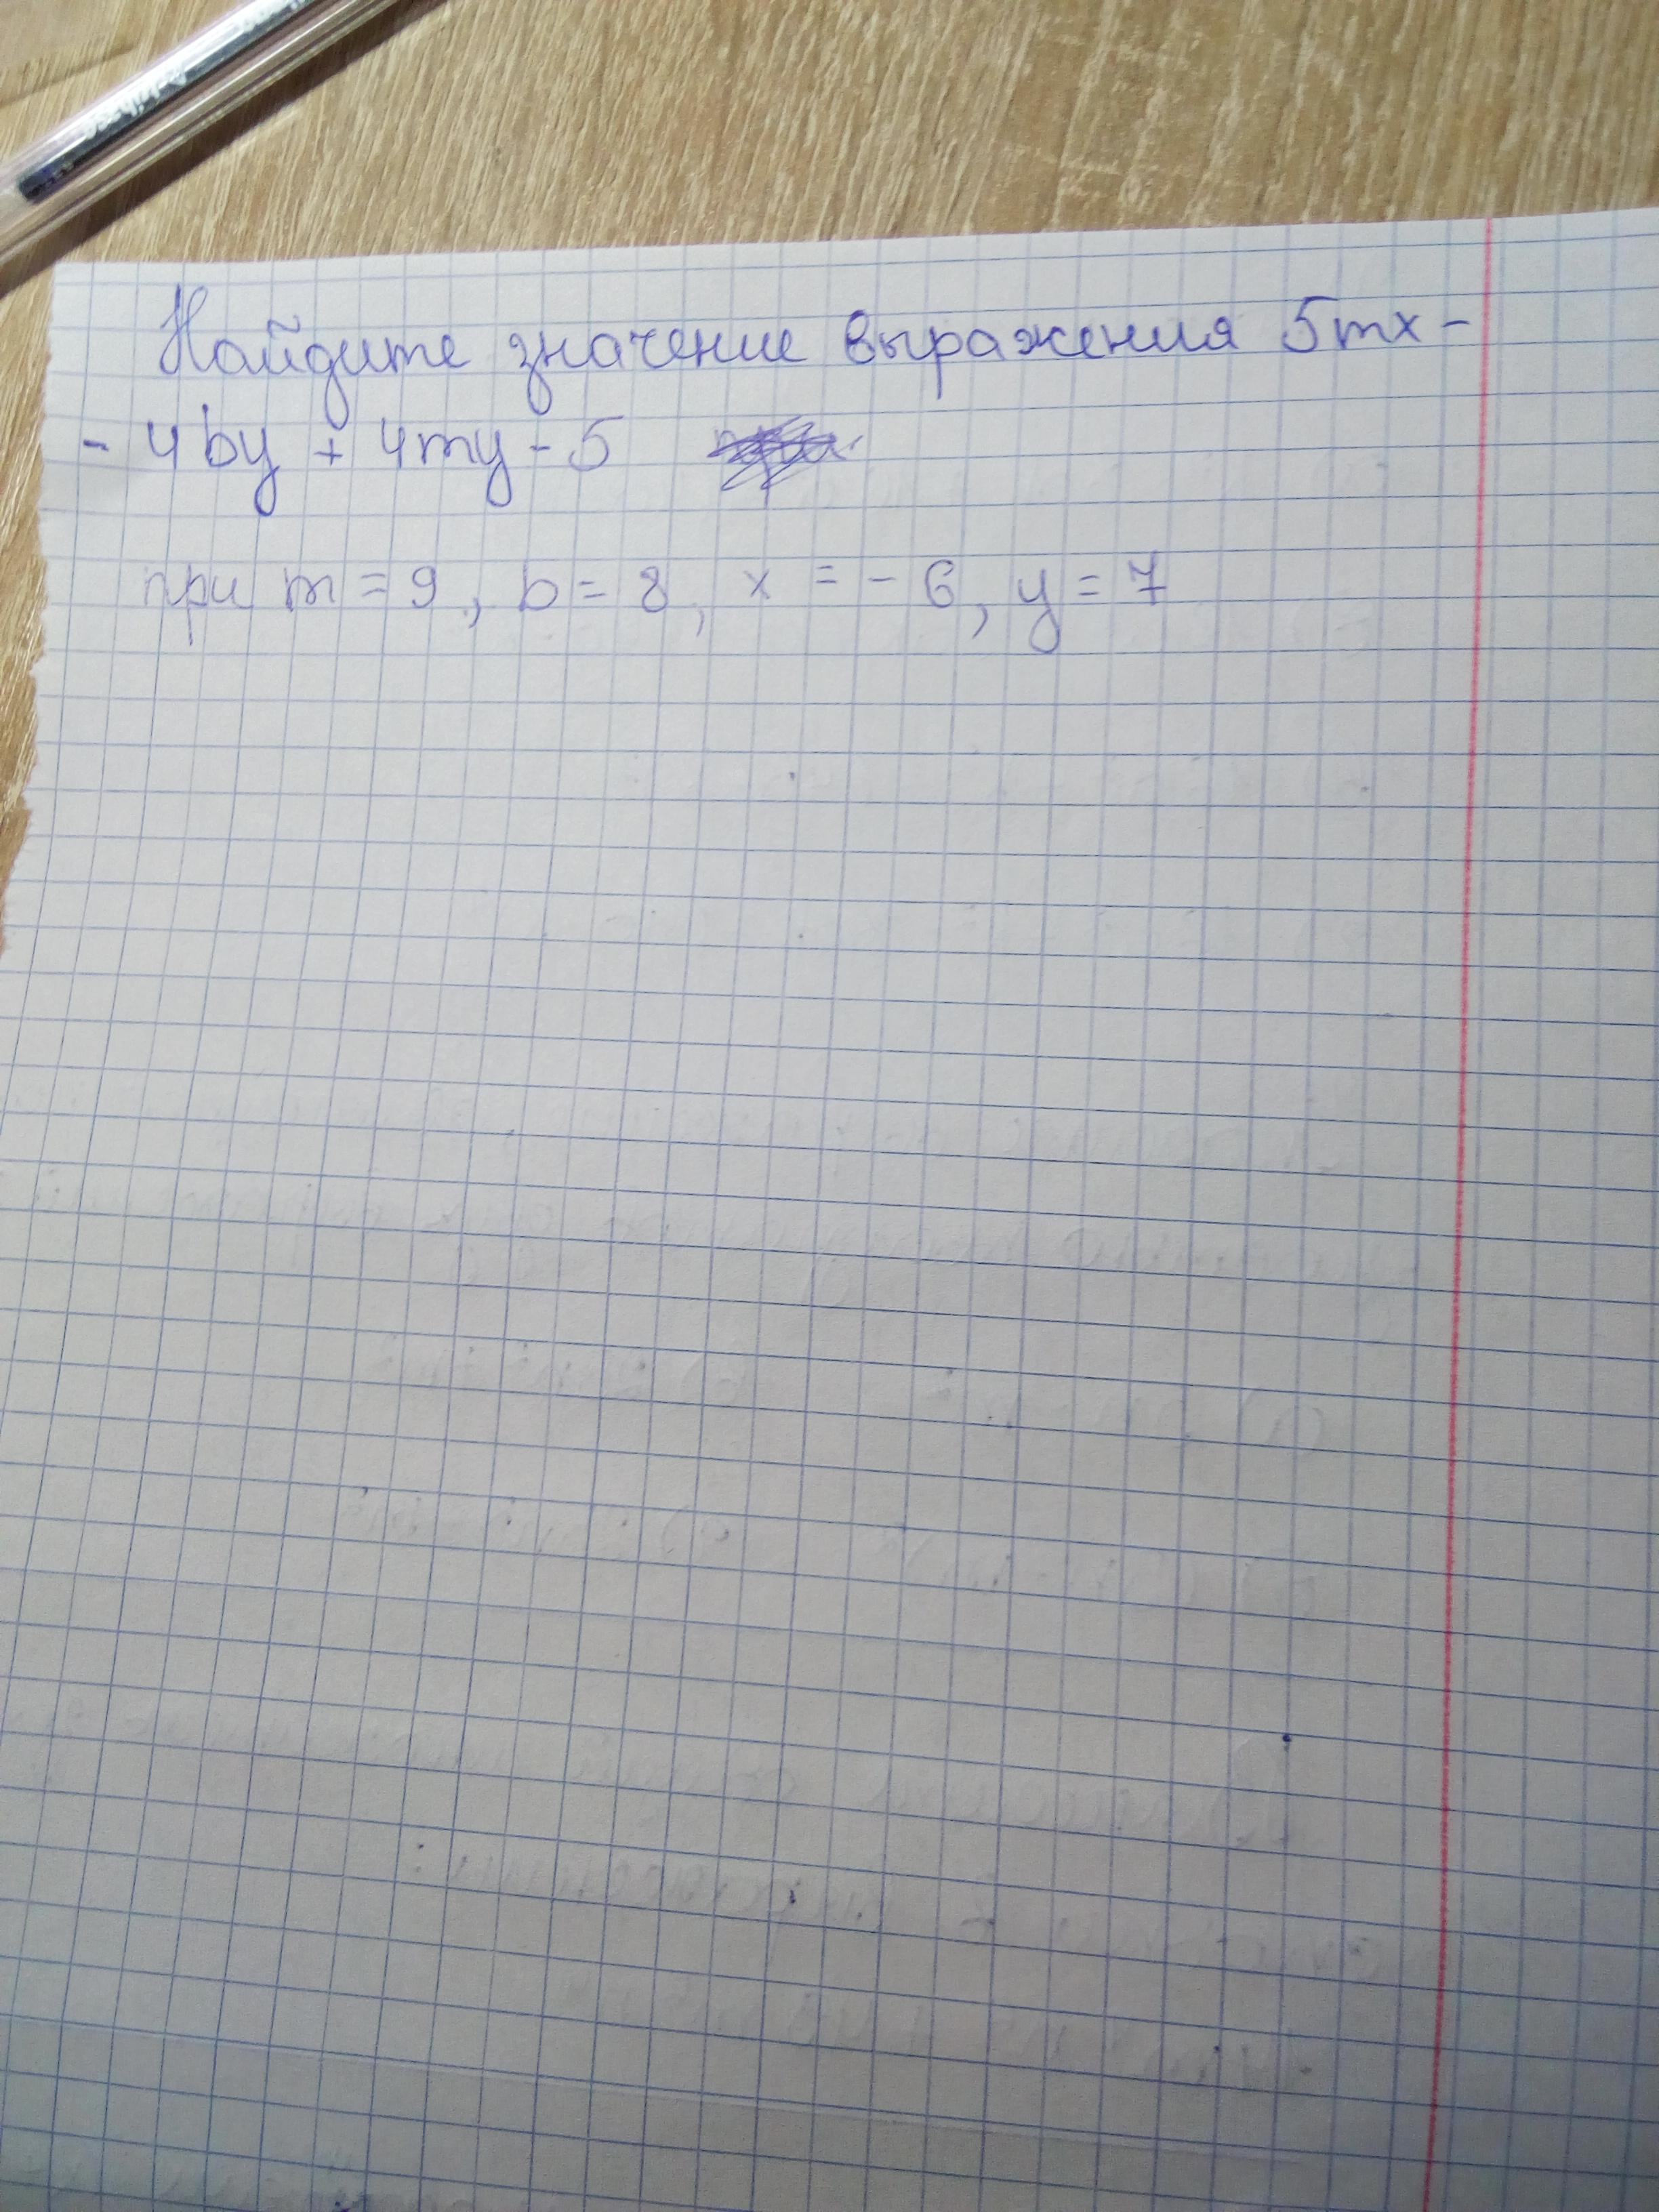 Найдите значение выражения 5mx -
- 4by + 4my - 5
при m = 9, b = 8, x = - 6, y = 7